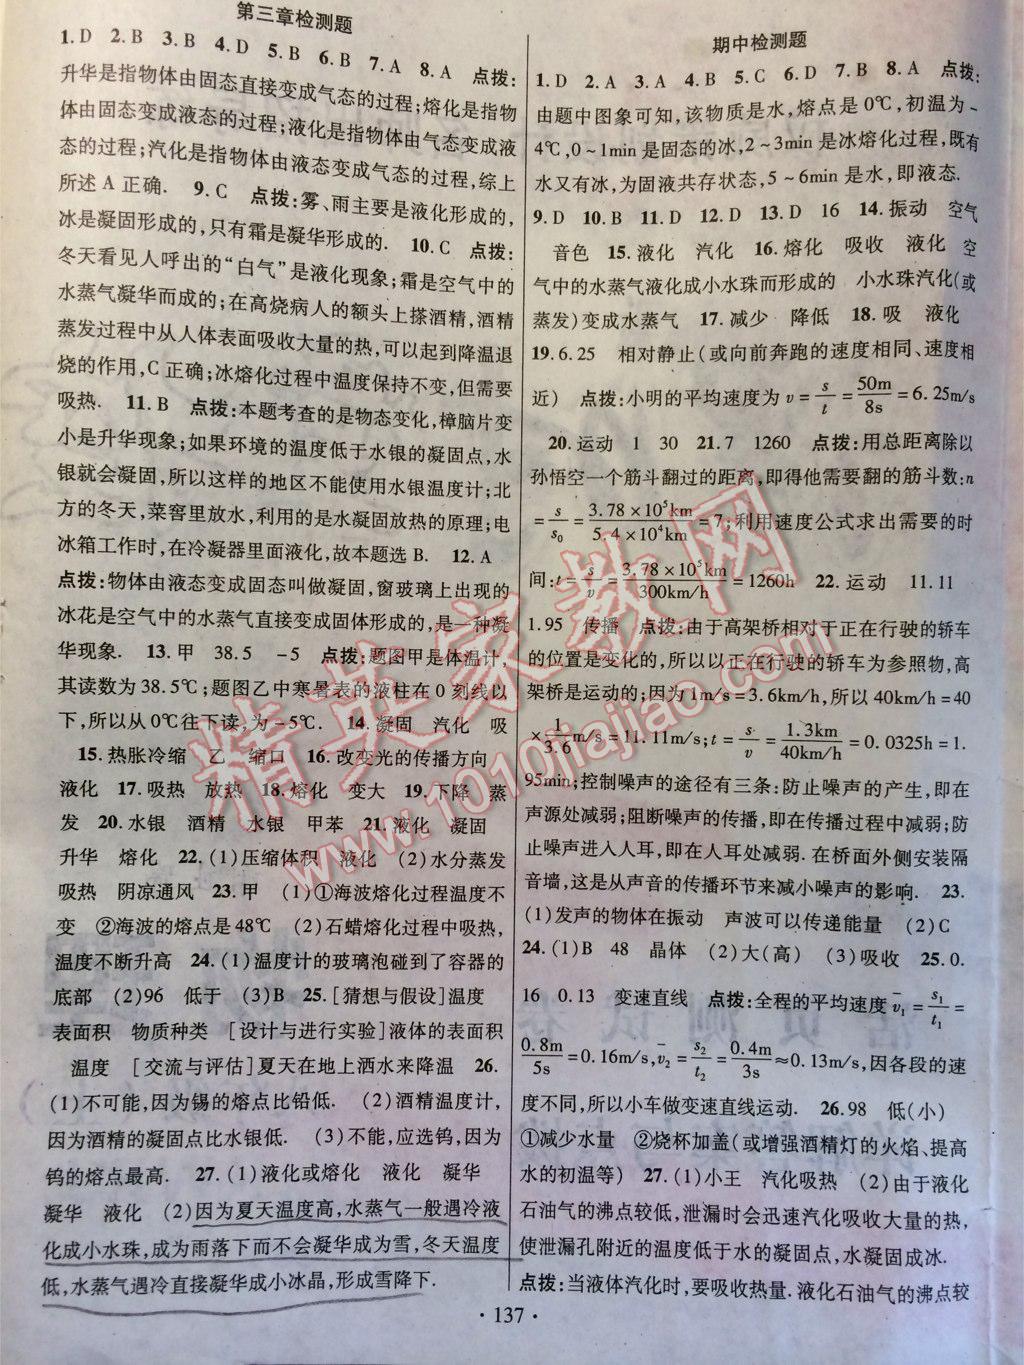 第三章检测题
1.D 2.B 3.B 4.D 5.B 6.B 7.A 8.A 点拨:
升华是指物体由固态直接变成气态的过程;熔化是指物
体由固态变成液态的过程;液化是指物体由气态变成液
态的过程;汽化是指物体由液态变成气态的过程,综上
所述 A 正确. 9.C 点拨:雾、雨主要是液化形成的,
冰是凝固形成的,只有霜是凝华形成的. 10.C 点拨:
冬天看见人呼出的“白气”是液化现象;霜是空气中的
水蒸气凝华而成的;在高烧病人的额头上搽酒精,酒精
蒸发过程中从人体表面吸收大量的热,可以起到降温退
烧的作用,C 正确;冰熔化过程中温度保持不变,但需要
吸热. 11.B 点拨:本题考查的是物态变化,樟脑片变
小是升华现象;如果环境的温度低于水银的凝固点,水
银就会凝固,所以这样的地区不能使用水银温度计;北
方的冬天,菜窖里放水,利用的是水凝固放热的原理;电
冰箱工作时,在冷凝器里面液化,故本题选 B. 12.A
点拨:物体由液态变成固态叫做凝固,窗玻璃上出现的
冰花是空气中的水蒸气直接变成固体形成的,是一种凝
华现象. 13.甲 38.5 -5 点拨:题图甲是体温计,
其读数为 38.5℃;题图乙中寒暑表的液柱在 0 刻线以
下,所以从 0℃往下读,为-5℃. 14.凝固 汽化 吸
15.热胀冷缩 乙 缩口 16.改变光的传播方向
液化 17.吸热 放热 18.熔化 变大 19.下降 蒸
发 20.水银 酒精 水银 甲苯 21.液化 凝固
升华 熔化 22.(1)压缩体积 液化 (2)水分蒸发
吸热 阴凉通风 23.甲 (1)①海波熔化过程温度不
变 ②海波的熔点是48℃ (2)石蜡熔化过程中吸热,
温度不断升高 24.(1)温度计的玻璃泡碰到了容器的
底部 (2)96 低于 (3)B 25.[猜想与假设]温度
表面积 物质种类 [设计与进行实验]液体的表面积
温度 [交流与评估]夏天在地上洒水来降温 26.
(1)不可能,因为锡的熔点比铅低. (2)酒精温度计,
因为酒精的凝固点比水银低. (3)不能,应选钨,因为
钨的熔点最高. 27.(1)液化或熔化 液化 凝华
凝华 液化 (2)因为夏天温度高,水蒸气一般遇冷液
化成小水珠,成为雨落下而不会凝华成为雪,冬天温度
低,水蒸气遇冷直接凝华成小冰晶,形成雪降下.
期中检测题
1.D 2.A 3.A 4.B 5.C 6.D 7.B 8.A 点拨:
由题中图象可知,该物质是水,熔点是0℃,初温为-
4℃,0~1min 是固态的冰,2~3min 是冰熔化过程,既有
水又有冰,为固液共存状态,5~6min 是水,即液态.
9.D 10.B 11.D 12.D 13.D 16 14.振动 空气
音色 15.液化 汽化 16.熔化 吸收 液化 空
气中的水蒸气液化成小水珠而形成的 小水珠汽化(或
蒸发)变成水蒸气 17.减少 降低 18.吸 液化
19.6.25 相对静止(或向前奔跑的速度相同、速度相
近) 点拨:小明的平均速度为 v=s/t=50m/8s=6.25m/s
20.运动 1 30 21.7 1260 点拨:用总距离除以
孙悟空一个筋斗翻过的距离,即得他需要翻的筋斗数:n
=s/s₀=3.78×10⁵km/5.4×10⁴km=7;利用速度公式求出需要的时
间:t=s/v=3.78×10⁵km/300km/h=1260h 22.运动 11.11
1.95 传播 点拨:由于高架桥相对于正在行驶的轿车
的位置是变化的,所以以正在行驶的轿车为参照物,高
架桥是运动的;因为1m/s=3.6km/h,所以 40km/h=40
×1/3.6m/s=11.11m/s;t=s/v=1.3km/40km/h=0.0325h=1.
95min;控制噪声的途径有三条:防止噪声的产生,即在
声源处减弱;阻断噪声的传播,即在传播过程中减弱;防
止噪声进入人耳,即在人耳处减弱.在桥面外侧安装隔
音墙,这是从声音的传播环节来减小噪声的影响. 23.
(1)发声的物体在振动 声波可以传递能量 (2)C
24.(1)B 48 晶体 (2)大(高) (3)吸收 25.0.
16 0.13 变速直线 点拨:全程的平均速度 v̄₁=s₁/t₁=
0.8m/5s=0.16m/s,v̄₂=s₂/t₂=0.4m/3s≈0.13m/s,因各段的速
度不同,所以小车做变速直线运动. 26.98 低(小)
①减少水量 ②烧杯加盖(或增强酒精灯的火焰、提高
水的初温等) 27.(1)小王 汽化吸热 (2)由于液化
石油气的沸点较低,泄漏时会迅速汽化吸收大量的热,
使泄漏孔附近的温度低于水的凝固点,水凝固成冰.
点拨:当液体汽化时,要吸收热量.液化石油气的沸点较
·137·
精英家教网
www.1010jiajiao.com